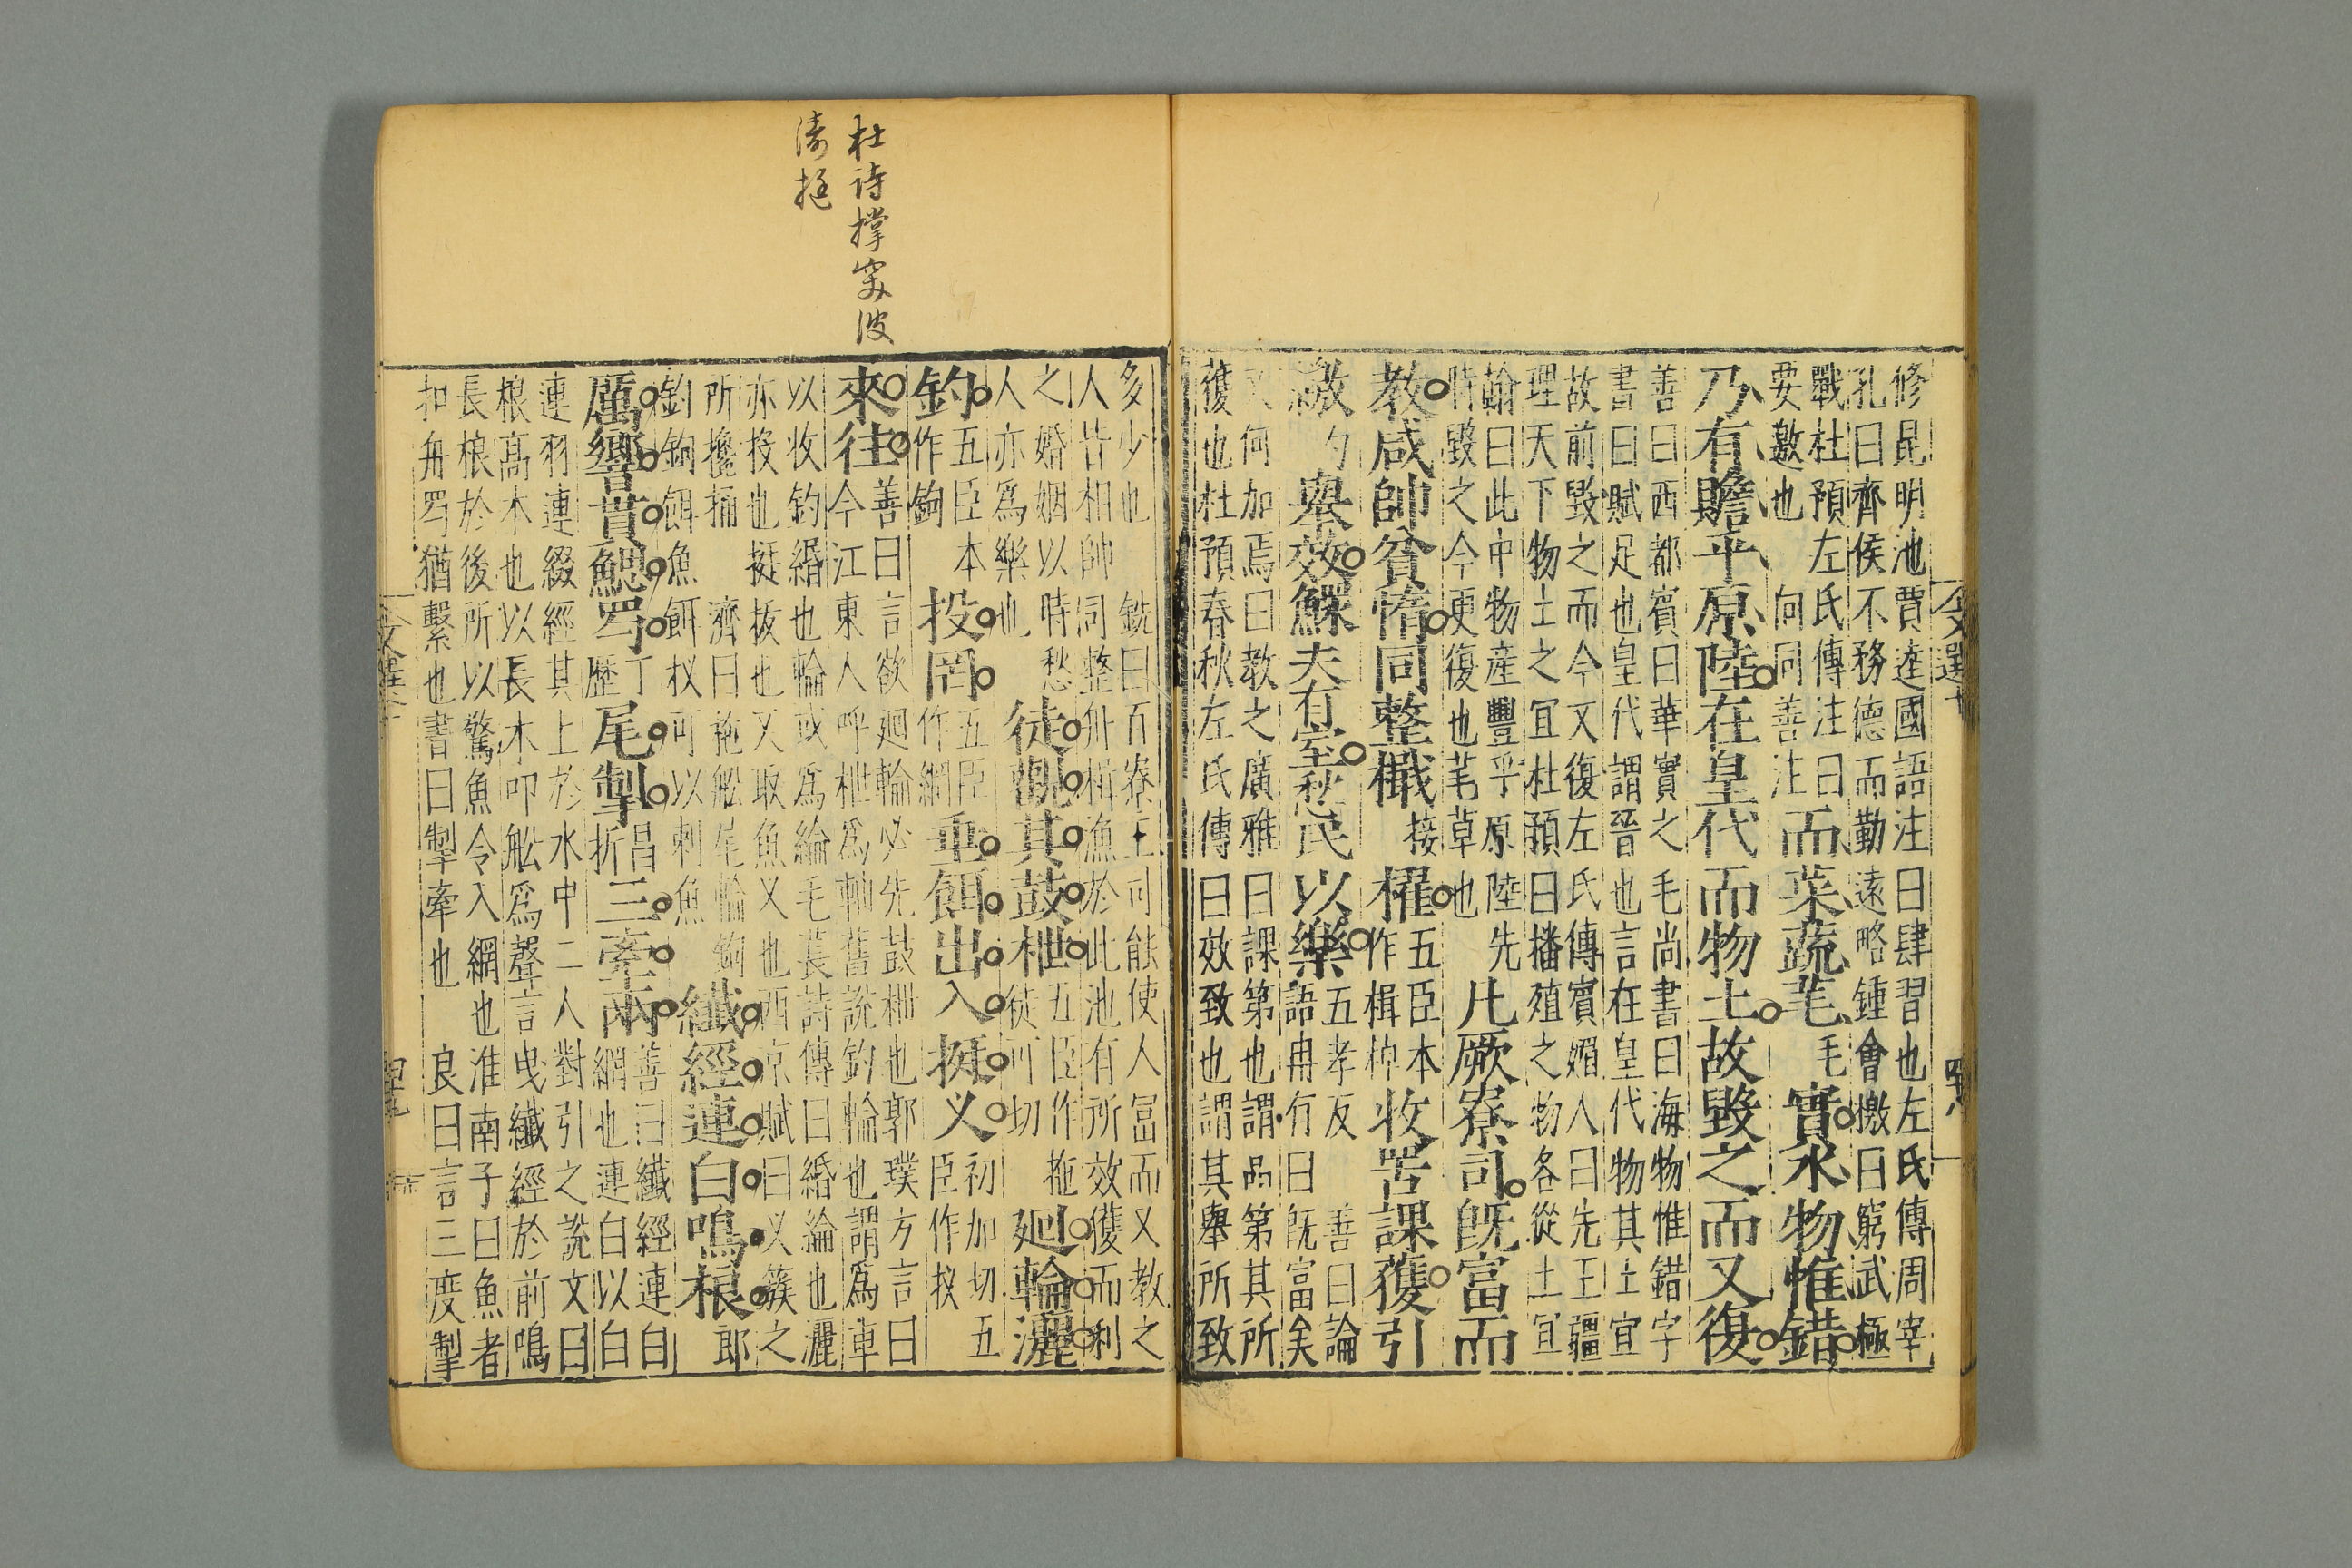 修昆明池賈逵國語注曰肆習也左氏傳周宰
孔曰齊侯不務德而勤遠略鍾會檄曰窮武極
戰杜預左氏傳注曰
要邀也 向同善注
而菜蔬芼毛實水物惟錯
乃有贍乎原陸在皇代而物土故毀之而又復
善曰西都賓曰華實之毛尚書曰海物惟錯字
書曰賦足也皇代謂晉也言在皇代物其土宜
故前毀之而今又復左氏傳賓媚人曰先王疆
理天下物土之宜杜預曰播殖之物各從土宜
翰曰此中物產豐乎原陸先
時毀之今更復也芼草也
凡厥寮司既富而
教咸帥貧惰同整檝接櫂五臣本作楫棹收罟課獲引
繳勺舉效鰥夫有室愁民以樂五孝反
善曰論
語冉有曰既富矣
又何加焉曰教之廣雅曰課第也謂品第其所
獲也杜預春秋左氏傳曰效致也謂其舉所致
文選十
杜诗撑突波
濤挺
多少也 銑曰百寮王司能使人冨而又教之
人皆相帥同整舟楫漁於此池有所效獲而利
之婚姻以時愁
人亦爲樂也
徒觀其鼓枻五臣作拖徒可切廻輪灑
釣五臣本作鉤投罔五臣作網垂餌出入挺义初加切五臣作扠
來往
善曰言欲廻輪必先鼓枻也郭璞方言曰
今江東人呼枻爲軸舊說釣輪也謂爲車
以收釣緡也輪或爲綸毛萇詩傳曰緡綸也灑
亦投也 挺拔也义取魚叉也西京賦曰义簇之
所攙捅 濟曰拖舩尾輪鉤
釣鉤餌魚餌扠可以刺魚
纖經連白鳴桹郎
厲響貫鰓䍥丁歷尾掣昌折三牽兩
善曰纖經連白
網也連白以白
連羽連綴經其上於水中二人對引之說文曰
桹高木也以長木叩舩爲聲言曳纖經於前鳴
長桹於後所以驚魚令入網也淮南子曰魚者
扣舟䍥猶繫也書曰掣牽也 良曰言三度掣